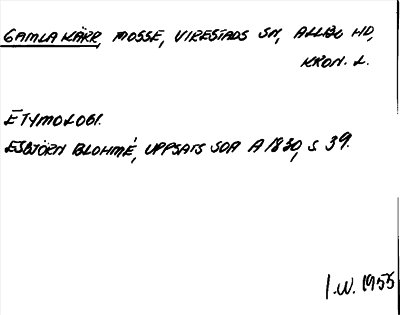 GAMLA KÄRR, MOSSE, VIRESTADS SN, ALLBO HD,
KRON. L.
ETYMOLOGI.
ESBJÖRN BLOHMÉ, UPPSATS SOA A 1830, S 39.
I.W. 1955